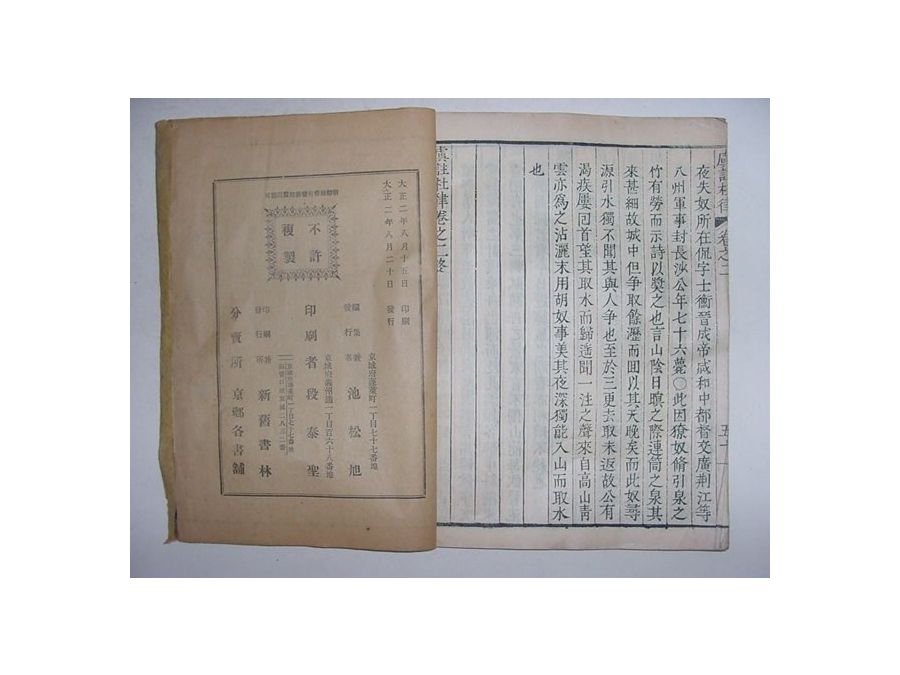 虞註杜律 卷之二
夜失奴所在侃字士衡晉成帝咸和中都督交廣荊江等
八州軍事封長沙公年七十六薨○此因獠奴脩引泉之
竹有勞而示詩以奬之也言山陰日暝之際連筒之泉其
來甚細故城中但争取餘瀝而囬以其天晚矣而此奴尋
源引水獨不聞其與人争也至於三更去取未返故公有
渴疾屢囘首望其取水而歸遥聞一注之聲來自高山青
雲亦為之沾灑末用胡奴事美其夜深獨能入山而取水
也
虞註杜律卷之二終
大正二年八月十五日 印刷
大正二年八月二十日 發行
不許
複製
京城府蓬萊町一丁目七十七番地
發行者 池松旭
京城府義州通一丁目百六十八番地
印刷者 段泰聖
印刷兼
發行所 新舊書林
分賣所 京鄉各書舖